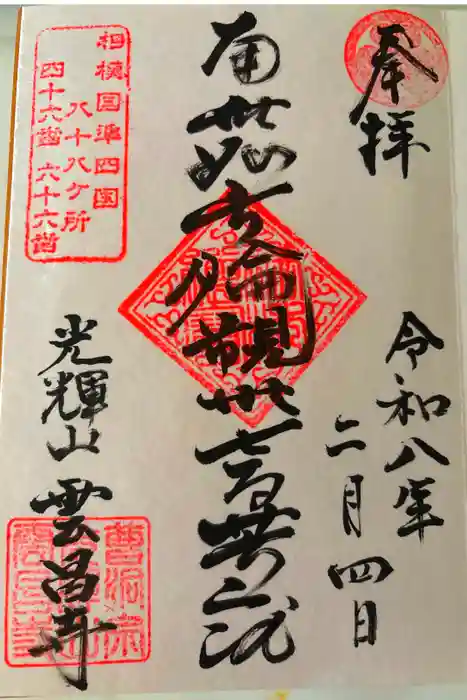 奉拝
令和八年
二月四日
南無如意輪観世音菩薩
相模国準四国
八十八ケ所
四十六番 六十六番
光輝山 雲昌寺